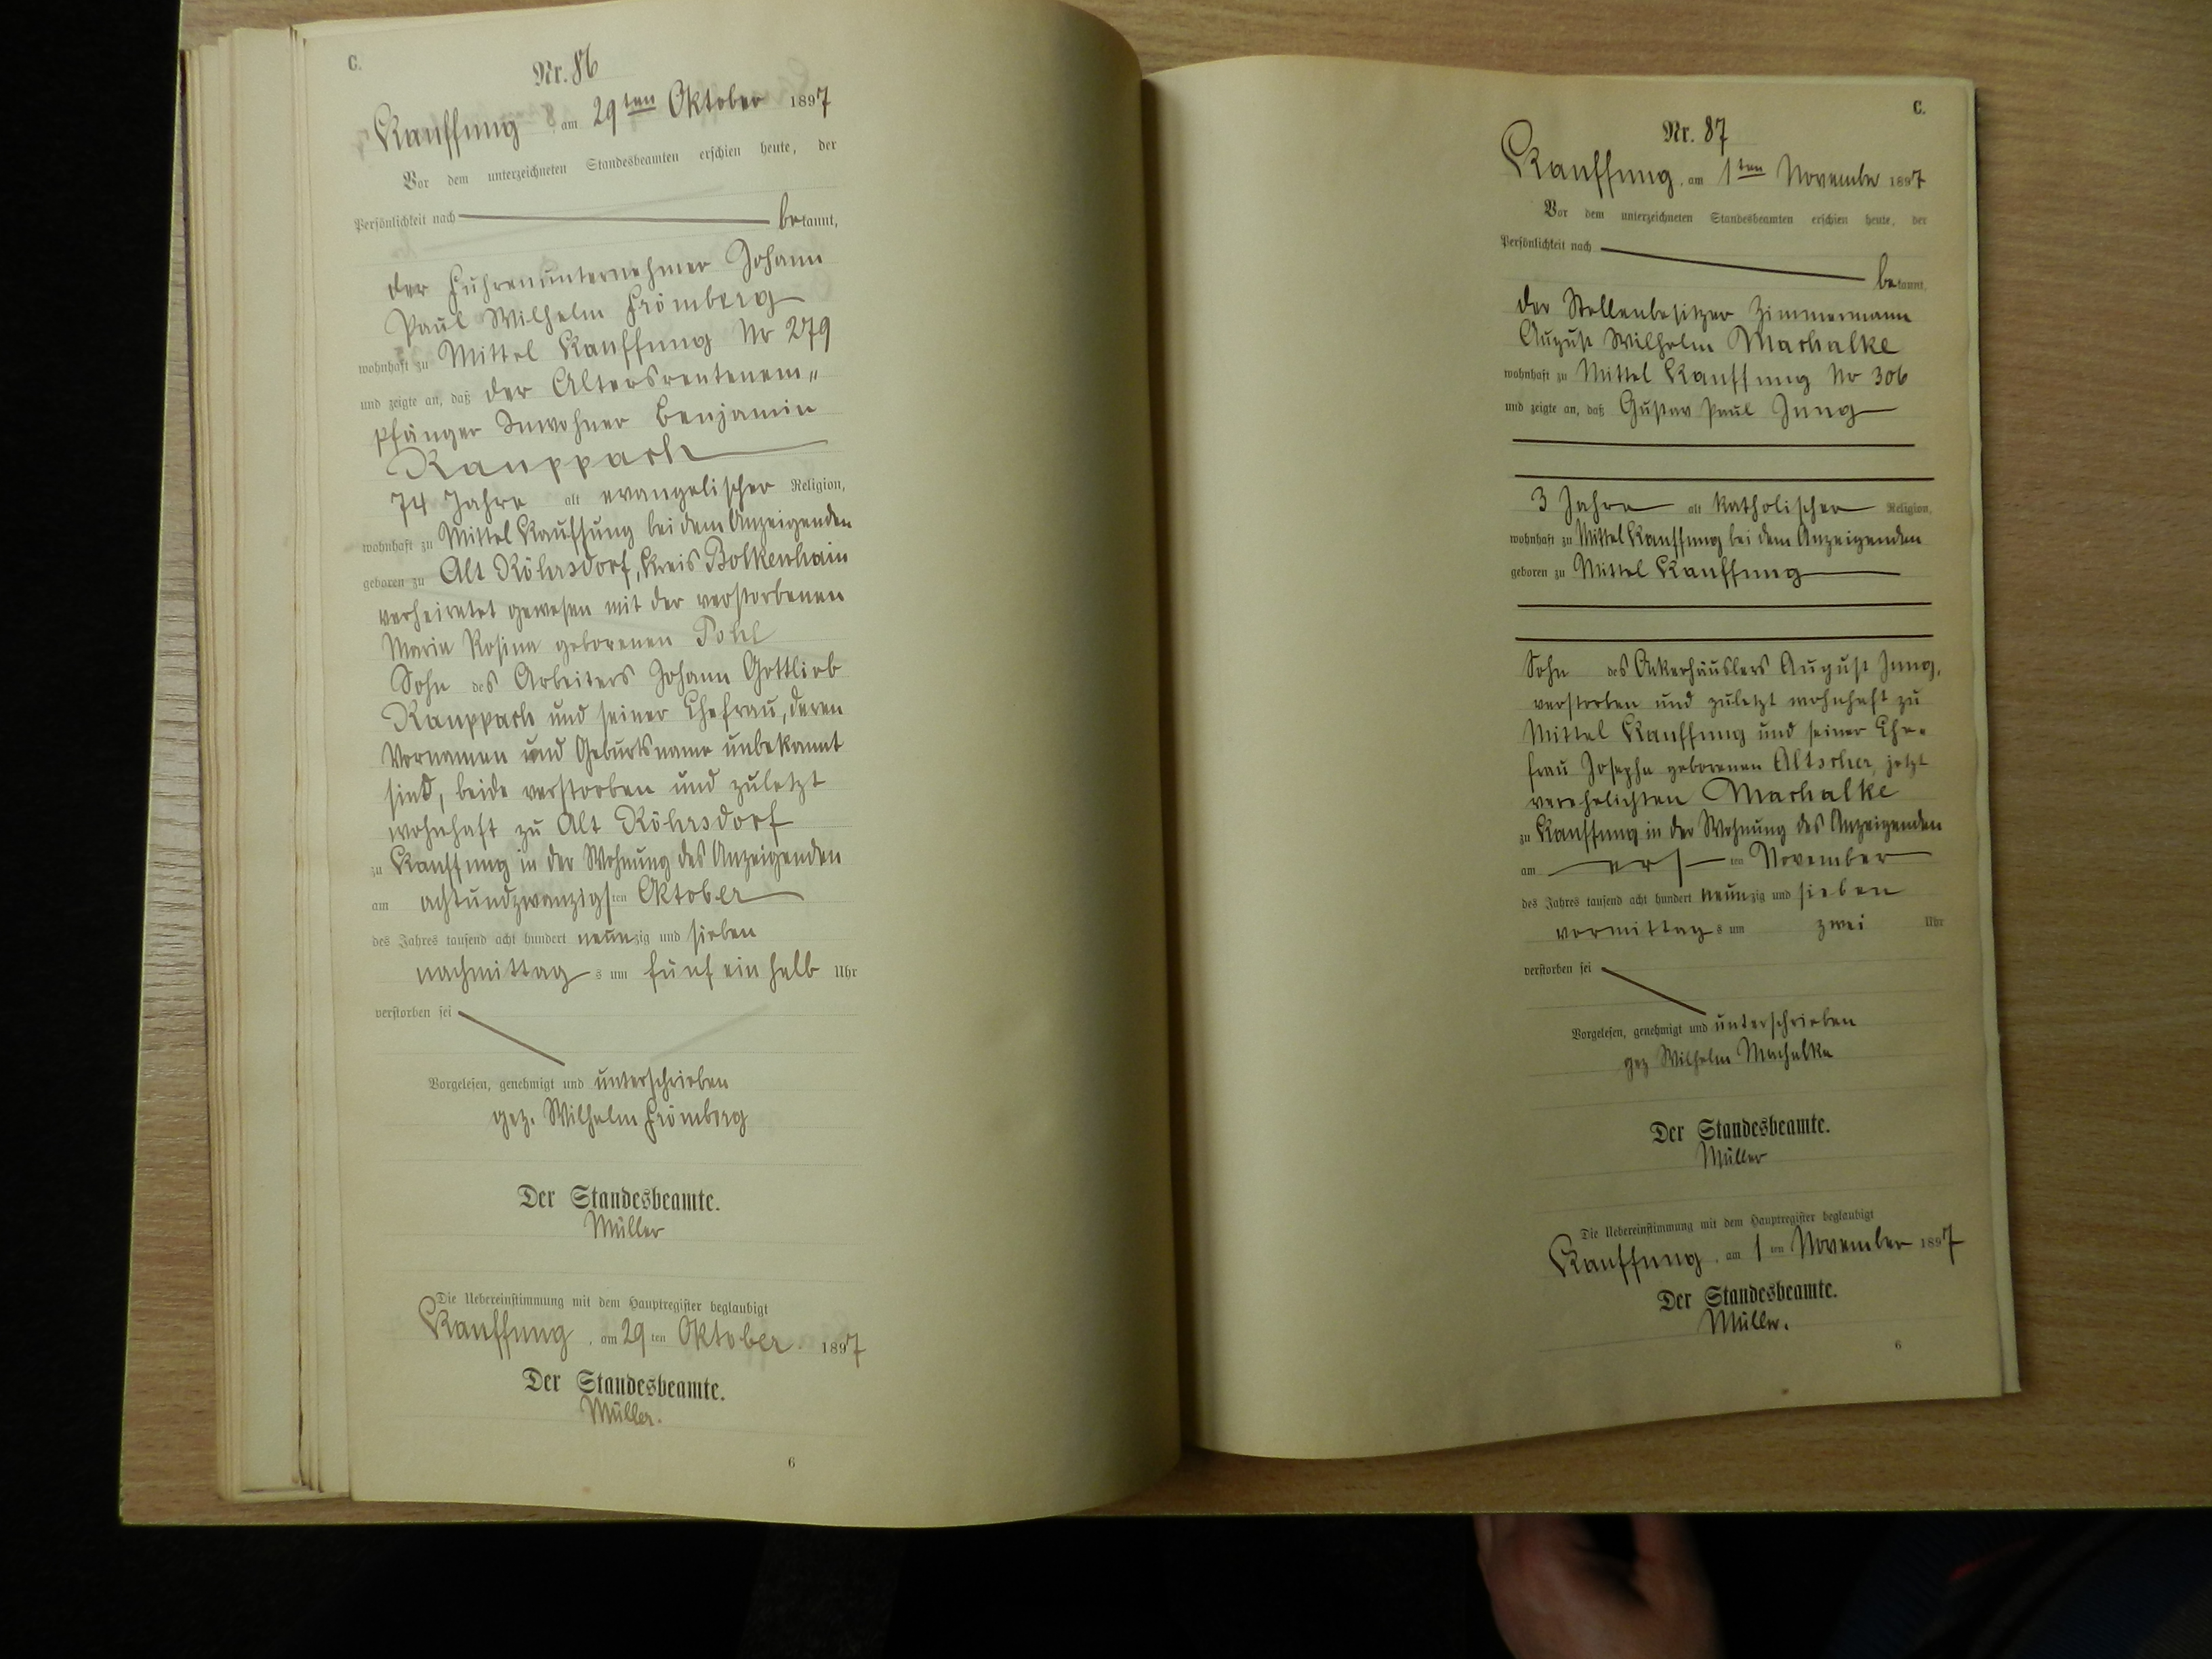 C.
Nr. 86
Kauffung am 29ten Oktober 1897
Vor dem unterzeichneten Standesbeamten erschien heute, der
Persönlichkeit nach bekannt,
der Fuhrenunternehmer Johann
Paul Wilhelm Frömberg
wohnhaft zu Mittel Kauffung Nr 279
und zeigte an, daß der Altersrentenem„
pfänger Inwohner Benjamin
Rauppach
74 Jahre alt evangelischer Religion,
wohnhaft zu Mittel Kauffung bei dem Anzeigenden
geboren zu Alt Röhrsdorf, Kreis Bolkenhain
verheiratet gewesen mit der verstorbenen
Maria Rosina geborenen Pohl
Sohn des Arbeiters Johann Gottlieb
Rauppach und seiner Ehefrau, deren
Vornamen und Geburtsname unbekannt
sind, beide verstorben und zuletzt
wohnhaft zu Alt Röhrsdorf
zu Kauffung in der Wohnung des Anzeigenden
am achtundzwanzigsten Oktober
des Jahres tausend acht hundert neunzig und sieben
nachmittags um fünf ein halb Uhr
verstorben sei
Vorgelesen, genehmigt und unterschrieben
gez. Wilhelm Frömberg
Der Standesbeamte.
Müller
Die Uebereinstimmung mit dem Hauptregister beglaubigt
Kauffung, am 29ten Oktober. 1897
Der Standesbeamte.
Müller.
6
C.
Nr. 87
Kauffung, am 1ten November 1897
Vor dem unterzeichneten Standesbeamten erschien heute, der
Persönlichkeit nach bekannt,
der Stellenbesitzer Zimmermann
August Wilhelm Machalke
wohnhaft zu Mittel Kauffung Nr 306
und zeigte an, daß Gustav Paul Jung
3 Jahre alt katholischer Religion,
wohnhaft zu Mittel Kauffung bei dem Anzeigenden
geboren zu Mittel Kauffung
Sohn des Ackerhäuslers August Jung,
verstorben und zuletzt wohnhaft zu
Mittel Kauffung und seiner Ehe-
frau Josepha geborenen Altscher, jetzt
verehelichten Machalke
zu Kauffung in der Wohnung des Anzeigenden
am ersten November
des Jahres tausend acht hundert neunzig und sieben
vormittags um zwei Uhr
verstorben sei
Vorgelesen, genehmigt und unterschrieben
gez Wilhelm Machalke
Der Standesbeamte.
Müller
Die Uebereinstimmung mit dem Hauptregister beglaubigt
Kauffung, am 1ten November 1897
Der Standesbeamte.
Müller.
6